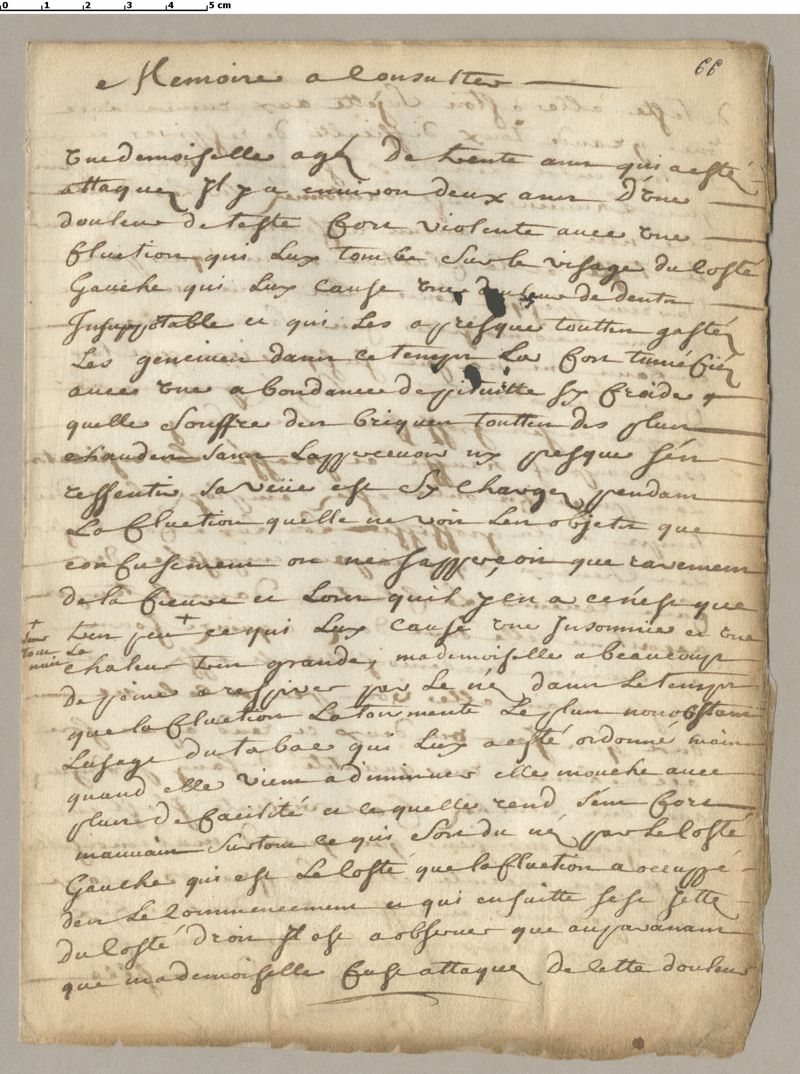 0 1 2 3 4 5 cm
66
Memoire a Consulter
Unedemoiselle agéz de trente ans qui a esté
attaquéz Il y a environ deux ans D'une
douleur de teste fort violente avec une
fluction qui Luy tombe Sur le visage du Costé
Gauche qui Luy cause une douleur de dents
Insuportable et qui Les a presque touttes gastéz
Les gencives dans ce temps La fort tuméfiéz
avec une abondance de pituitte sy froide
quelle Souffre des briques touttes des plus
chaudes sans Lappercevoir ny presque s'én
ressentir sa veüe est Sy chargéz pendant
La fluction quelle ne voit Les objets que
confusement on ne sapperçoit que rarement
de la fievre et Lors quil y en a ce n'est que
tres peu + ce qui Luy cause une Insomnie et une
+ sur
tout La
nuit
chaleur tres grande, mademoiselle a beaucoup
de peine a respirer par Le né dans Le temps
que la fluction La tormente Le plus nonobstant
Lusage du tabac qui Luy a esté ordonné mais
quand elle vient a diminuer elle mouche avec
plus de facilité et ce quelle rend sént fort
mauvais Surtout ce qui Sort du né par Le Costé
Gauche qui est Le Costé que la fluction a occuppé
des Le Commencement et qui ensuitte sest jetté
du Costé droit Il est a observer que auparavant
que mademoiselle fust attaquéz De Cette douleur